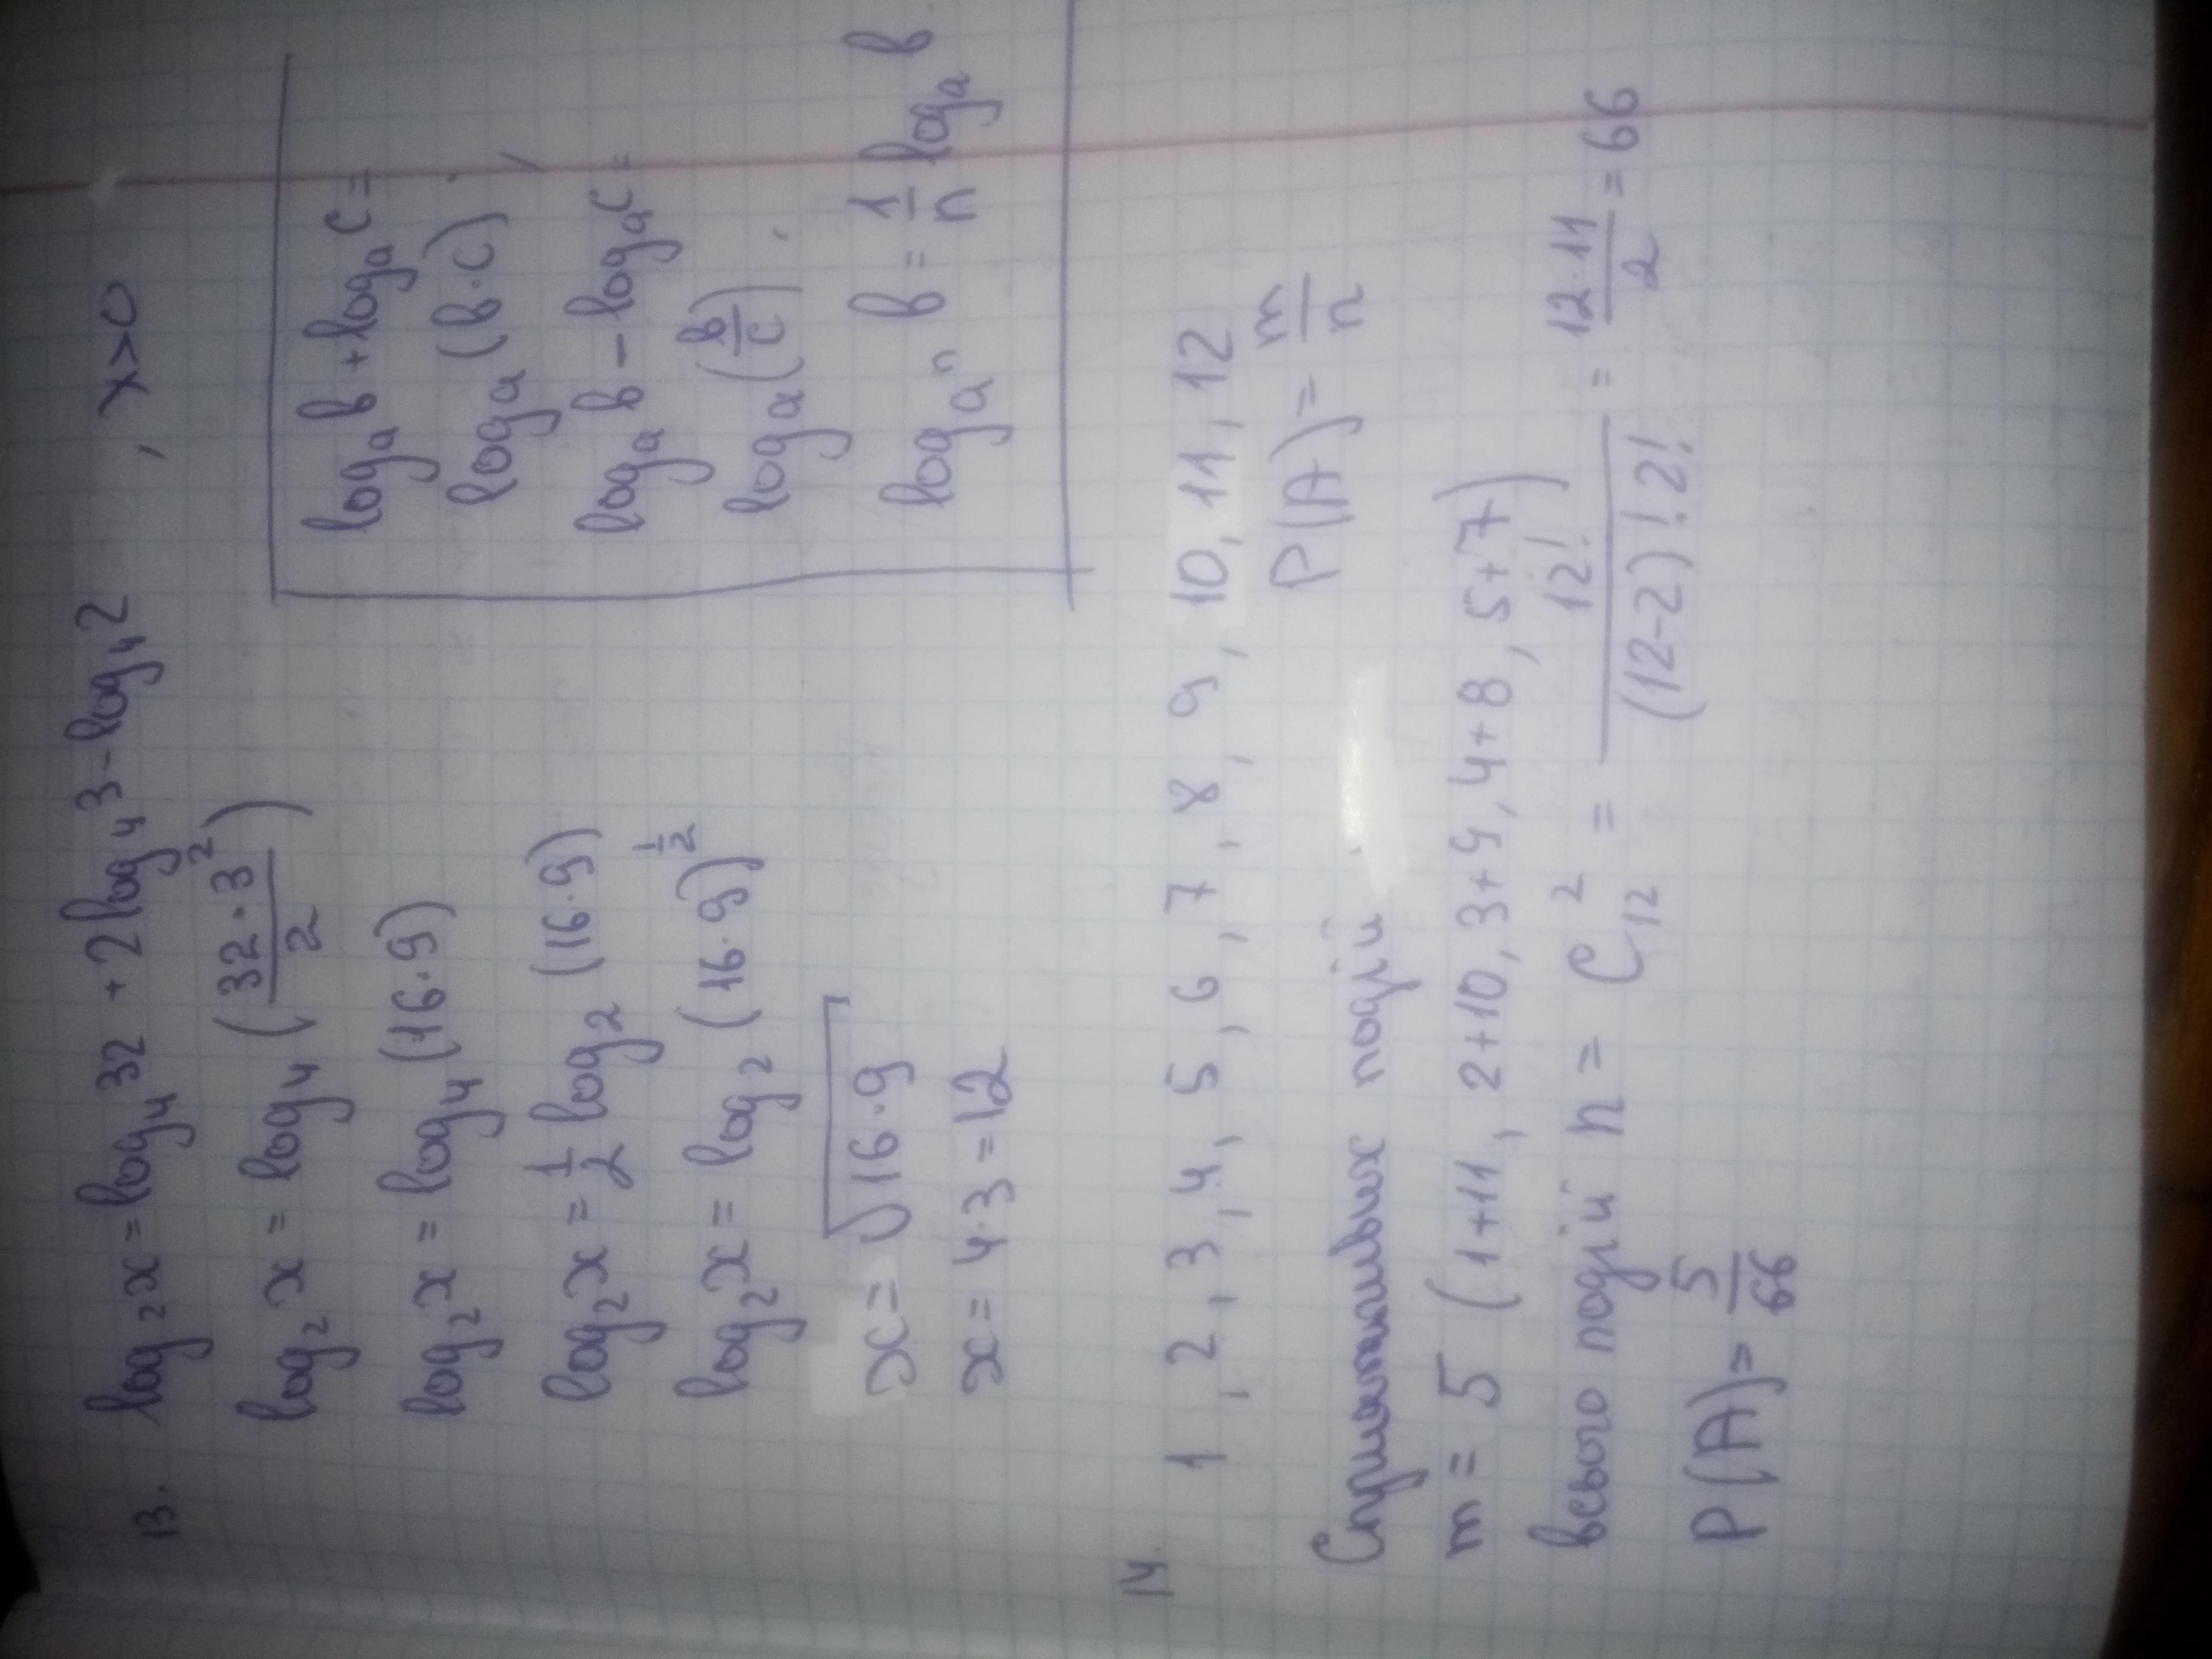 13. log₂x = log₄32 + 2log₄3 - log₄2 , x>0
log₂x = log₄(32·3²/2)
log₂x = log₄(16·9)
log₂x = 1/2 log₂(16·9)
log₂x = log₂(16·9)^(1/2)
x = √16·9
x = 4·3 = 12
logₐb + logₐc =
logₐ(b·c);
logₐb - logₐc =
logₐ(b/c);
log_aⁿ b = 1/n logₐ b
14. 1, 2, 3, 4, 5, 6, 7, 8, 9, 10, 11, 12
P(A) = m/n
Сприятливих подій
m = 5 (1+11, 2+10, 3+9, 4+8, 5+7)
всього подій n = C₁₂² = 12!/(12-2)!·2! = 12·11/2 = 66
P(A) = 5/66